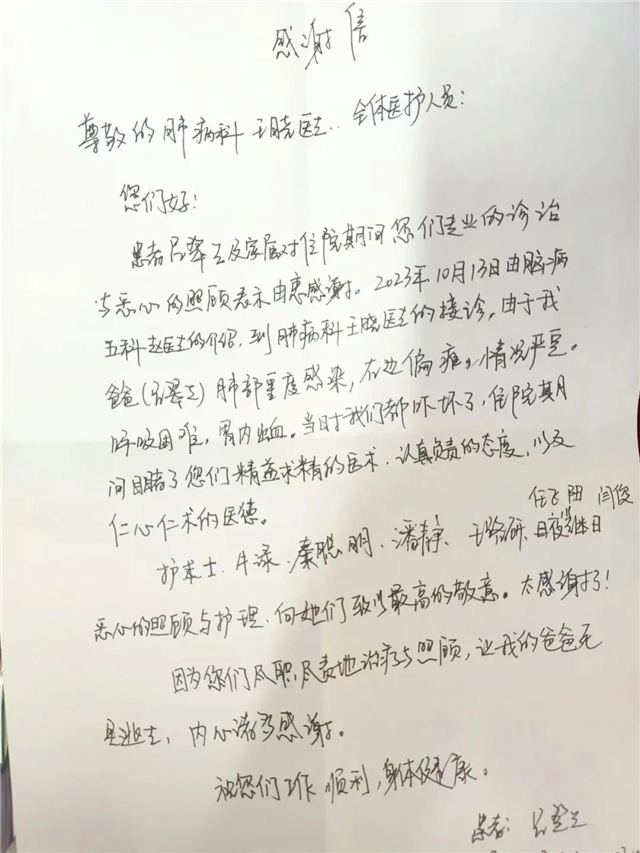 感谢信
尊敬的肺病科王晓医生.. 全体医护人员:
您们好:
患者吕翠兰及家属对住院期间您们专业的诊治
与悉心的照顾表示由衷感谢。2023年10月13日由脑病
五科赵医生的介绍,到肺病科王晓医生的接诊,由于我
爸爸(吕翠兰)肺部重度感染,右边偏瘫,情况严重。
呼吸困难,胃内出血。当时我们都吓坏了,住院期
间目睹了您们精益求精的医术,认真负责的态度,以及
仁心仁术的医德。
任飞阳 闫俊
护士 牛渌、秦聪明、潘静、日夜继日
悉心的照顾与护理,向她们致以最高的敬意。太感谢了!
因为您们尽职,尽责地治疗与照顾,让我的爸爸死
里逃生,内心满感谢。
祝您们工作顺利,身体健康。
患者: 吕翠兰